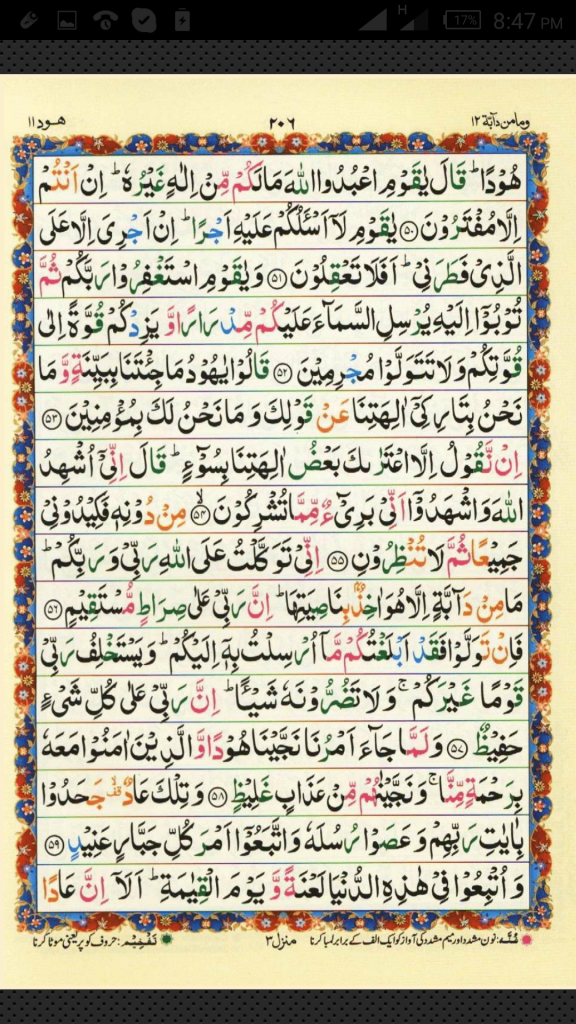 H 17% 8:47 PM
ومامن دآبة ١٢
٢٠٦
هود ١١
هُوْدًا ؕ قَالَ يٰقَوْمِ اعْبُدُوا اللّٰهَ مَا لَكُمْ مِّنْ اِلٰهٍ غَيْرُهٗ ؕ اِنْ اَنْتُمْ
اِلَّا مُفْتَرُوْنَ ﴿۵۰﴾ يٰقَوْمِ لَاۤ اَسْـَٔلُكُمْ عَلَيْهِ اَجْرًا ؕ اِنْ اَجْرِىَ اِلَّا عَلَى
الَّذِىْ فَطَرَنِىْ ؕ اَفَلَا تَعْقِلُوْنَ ﴿۵۱﴾ وَيٰقَوْمِ اسْتَغْفِرُوْا رَبَّكُمْ ثُمَّ
تُوْبُوْۤا اِلَيْهِ يُرْسِلِ السَّمَآءَ عَلَيْكُمْ مِّدْرَارًا وَّيَزِدْكُمْ قُوَّةً اِلٰى
قُوَّتِكُمْ وَلَا تَتَوَلَّوْا مُجْرِمِيْنَ ﴿۵۲﴾ قَالُوْا يٰهُوْدُ مَا جِئْتَنَا بِبَيِّنَةٍ وَّمَا
نَحْنُ بِتَارِكِىْۤ اٰلِهَتِنَا عَنْ قَوْلِكَ وَمَا نَحْنُ لَكَ بِمُؤْمِنِيْنَ ﴿۵۳﴾
اِنْ نَّقُوْلُ اِلَّا اعْتَرٰىكَ بَعْضُ اٰلِهَتِنَا بِسُوْٓءٍ ؕ قَالَ اِنِّىْۤ اُشْهِدُ
اللّٰهَ وَاشْهَدُوْۤا اَنِّىْ بَرِىْٓءٌ مِّمَّا تُشْرِكُوْنَ ﴿۵۴﴾ۙ مِنْ دُوْنِهٖ فَكِيْدُوْنِىْ
جَمِيْعًا ثُمَّ لَا تُنْظِرُوْنِ ﴿۵۵﴾ اِنِّىْ تَوَكَّلْتُ عَلَى اللّٰهِ رَبِّىْ وَرَبِّكُمْ ؕ
مَا مِنْ دَآبَّةٍ اِلَّا هُوَ اٰخِذٌۢ بِنَاصِيَتِهَا ؕ اِنَّ رَبِّىْ عَلٰى صِرَاطٍ مُّسْتَقِيْمٍ ﴿۵۶﴾
فَاِنْ تَوَلَّوْا فَقَدْ اَبْلَغْتُكُمْ مَّاۤ اُرْسِلْتُ بِهٖۤ اِلَيْكُمْ ؕ وَيَسْتَخْلِفُ رَبِّىْ
قَوْمًا غَيْرَكُمْ ۚ وَلَا تَضُرُّوْنَهٗ شَيْـًٔا ؕ اِنَّ رَبِّىْ عَلٰى كُلِّ شَىْءٍ
حَفِيْظٌ ﴿۵۷﴾ وَلَمَّا جَآءَ اَمْرُنَا نَجَّيْنَا هُوْدًا وَّالَّذِيْنَ اٰمَنُوْا مَعَهٗ
بِرَحْمَةٍ مِّنَّا ۚ وَنَجَّيْنٰهُمْ مِّنْ عَذَابٍ غَلِيْظٍ ﴿۵۸﴾ وَتِلْكَ عَادٌ ۟ۙ جَحَدُوْا
بِاٰيٰتِ رَبِّهِمْ وَعَصَوْا رُسُلَهٗ وَاتَّبَعُوْۤا اَمْرَ كُلِّ جَبَّارٍ عَنِيْدٍ ﴿۵۹﴾
وَاُتْبِعُوْا فِىْ هٰذِهِ الدُّنْيَا لَعْنَةً وَّيَوْمَ الْقِيٰمَةِ ؕ اَلَاۤ اِنَّ عَادًا
غُنَّہ: نون مشدد اور میم مشدد کی آواز کو ایک الف کے برابر لمبا کرنا
منزل ٣
تَفْخِیْم: حروف کو پُر یعنی موٹا کرنا